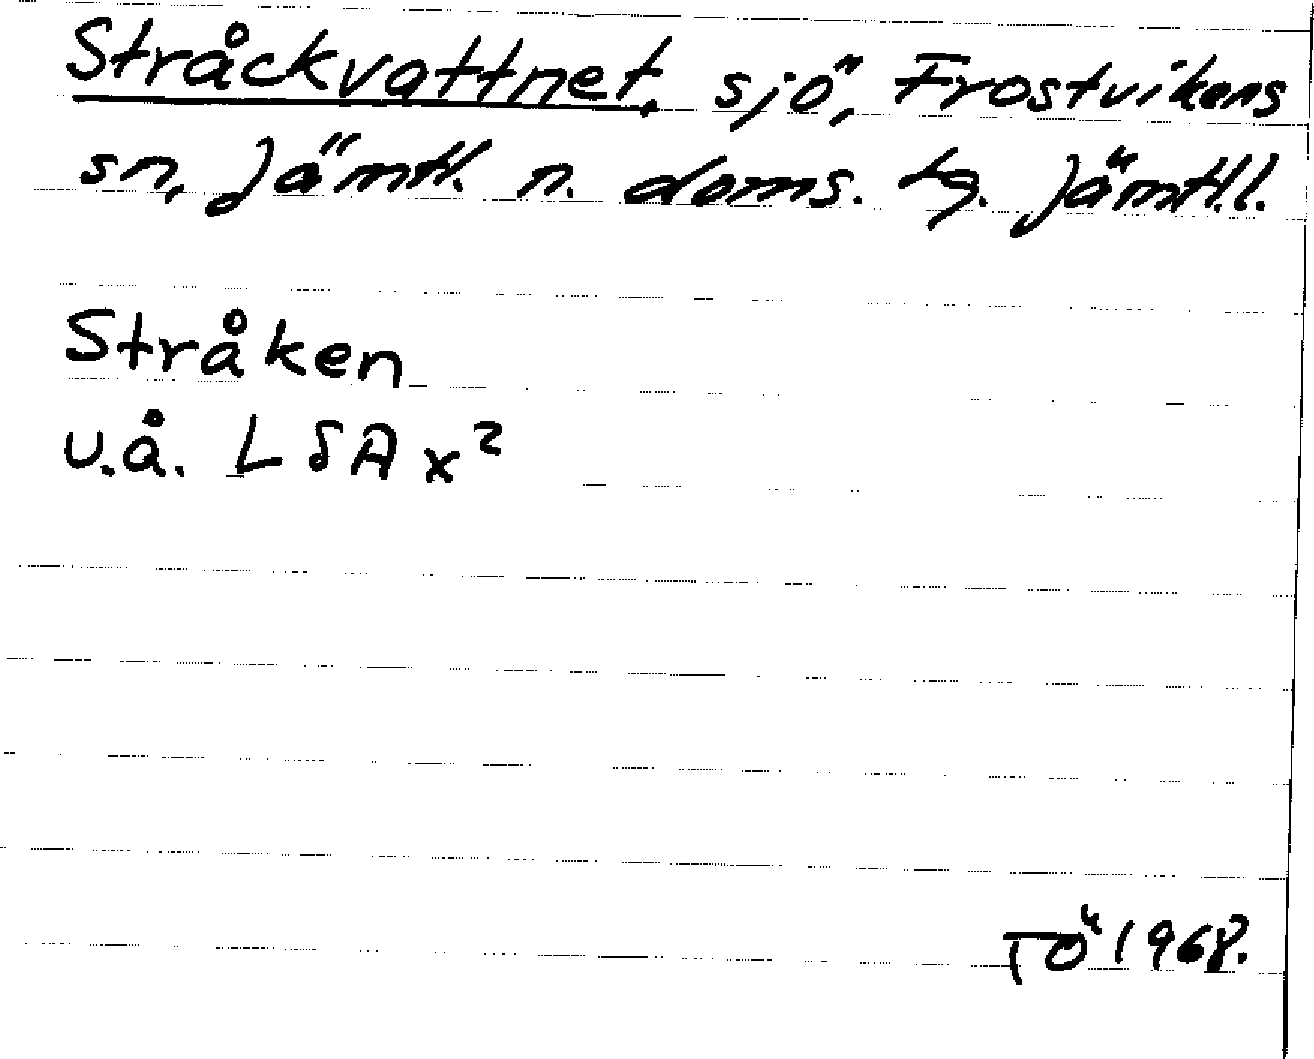 Stråckvattnet, sjö, Frostvikens
sn, Jämtl. n. doms. tg. Jämtl.l.
Stråken
u.å. LSA x²
TÖ 1968.